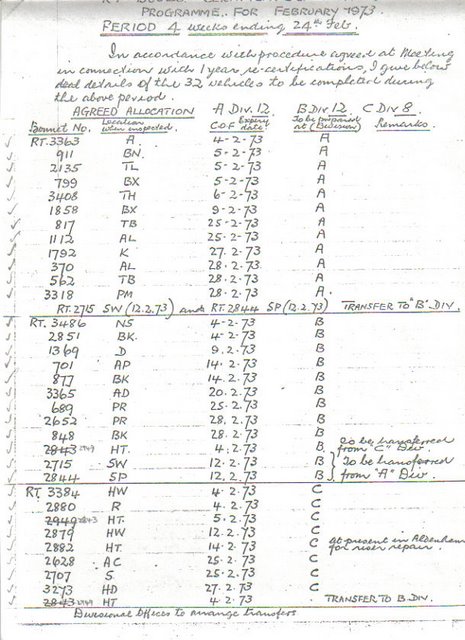 PROGRAMME. FOR FEBRUARY 1973.
PERIOD 4 weeks ending 24th Feb.
In accordance with procedure agreed at Meeting
in connection with 1 year re-certifications, I give below
details of the 32 vehicles to be completed during
the above period.
AGREED ALLOCATION A DIV. 12 B DIV 12 C DIV 8
Bonnet No. Location when inspected. C.O.F. Expiry date To be prepared at (Division) Remarks.
RT. 3363 A 4-2-73 A
911 BN. 5-2-73 A
2135 TL 5-2-73 A
799 BX 5-2-73 A
3408 TH 6-2-73 A
1858 BX 9-2-73 A
817 TB 25-2-73 A
1112 AL 25.2.73 A
1792 K 27.2.73 A
370 AL 28.2.73 A
562 TB 28.2.73 A
3318 PM 28.2.73 A.
RT. 2715 SW (12.2.73) and RT. 2844 SP (12.2.73) TRANSFER TO "B" DIV.
RT. 3486 NS 4-2-73 B
2851 BK. 4-2-73 B
1369 D 9.2.73 B
701 AP 14.2.73 B
877 BK 14.2.73 B
3365 AD 20.2.73 B
689 PR 25.2.73 B
2652 PR 28.2.73 B
848 BK 28.2.73 B
2843 2949 HT. 4.2.73 B To be transferred from "C" Div
2715 SW 12.2.73 B } To be transferred
2844 SP 12.2.73 B } from "A" Div.
RT. 3384 HW 4.2.73 C
2880 R 4.2.73 C
2949 2843 HT. 5.2.73 C
2879 HW 12.2.73 C
2882 HT. 14.2.73 C at present in Aldenham for riser repair.
2628 AC 25.2.73 C
2707 S. 25.2.73 C
3273 HD 27.2.73 C
2843 2949 HT 4.2.73 . TRANSFER TO B. DIV.
Divisional Offices to arrange transfers